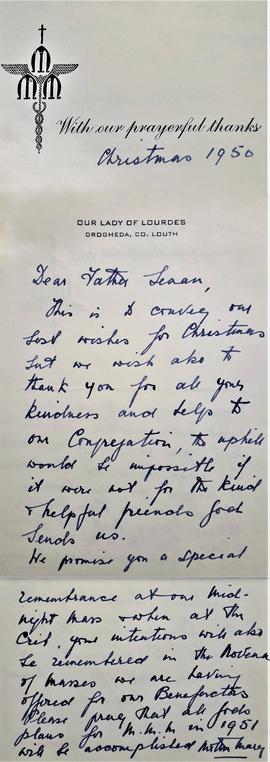 M
M M
With our prayerful thanks
Christmas 1950
OUR LADY OF LOURDES
DROGHEDA, CO. LOUTH
Dear Father Senan,
This is to convey our
best wishes for Christmas
but we wish also to
thank you for all your
kindness and help to
our Congregation, the uphill
would be impossible if
it were not for the kind
& helpful friends God
sends us.
We promise you a special
remembrance at our Mid-
night Mass & when at the
Crib your intentions will also
be remembered in the Novena
of Masses we are having
offered for our Benefactors
Please pray that all God's
plans for M.M.M in 1951
will be accomplished Mother Mary